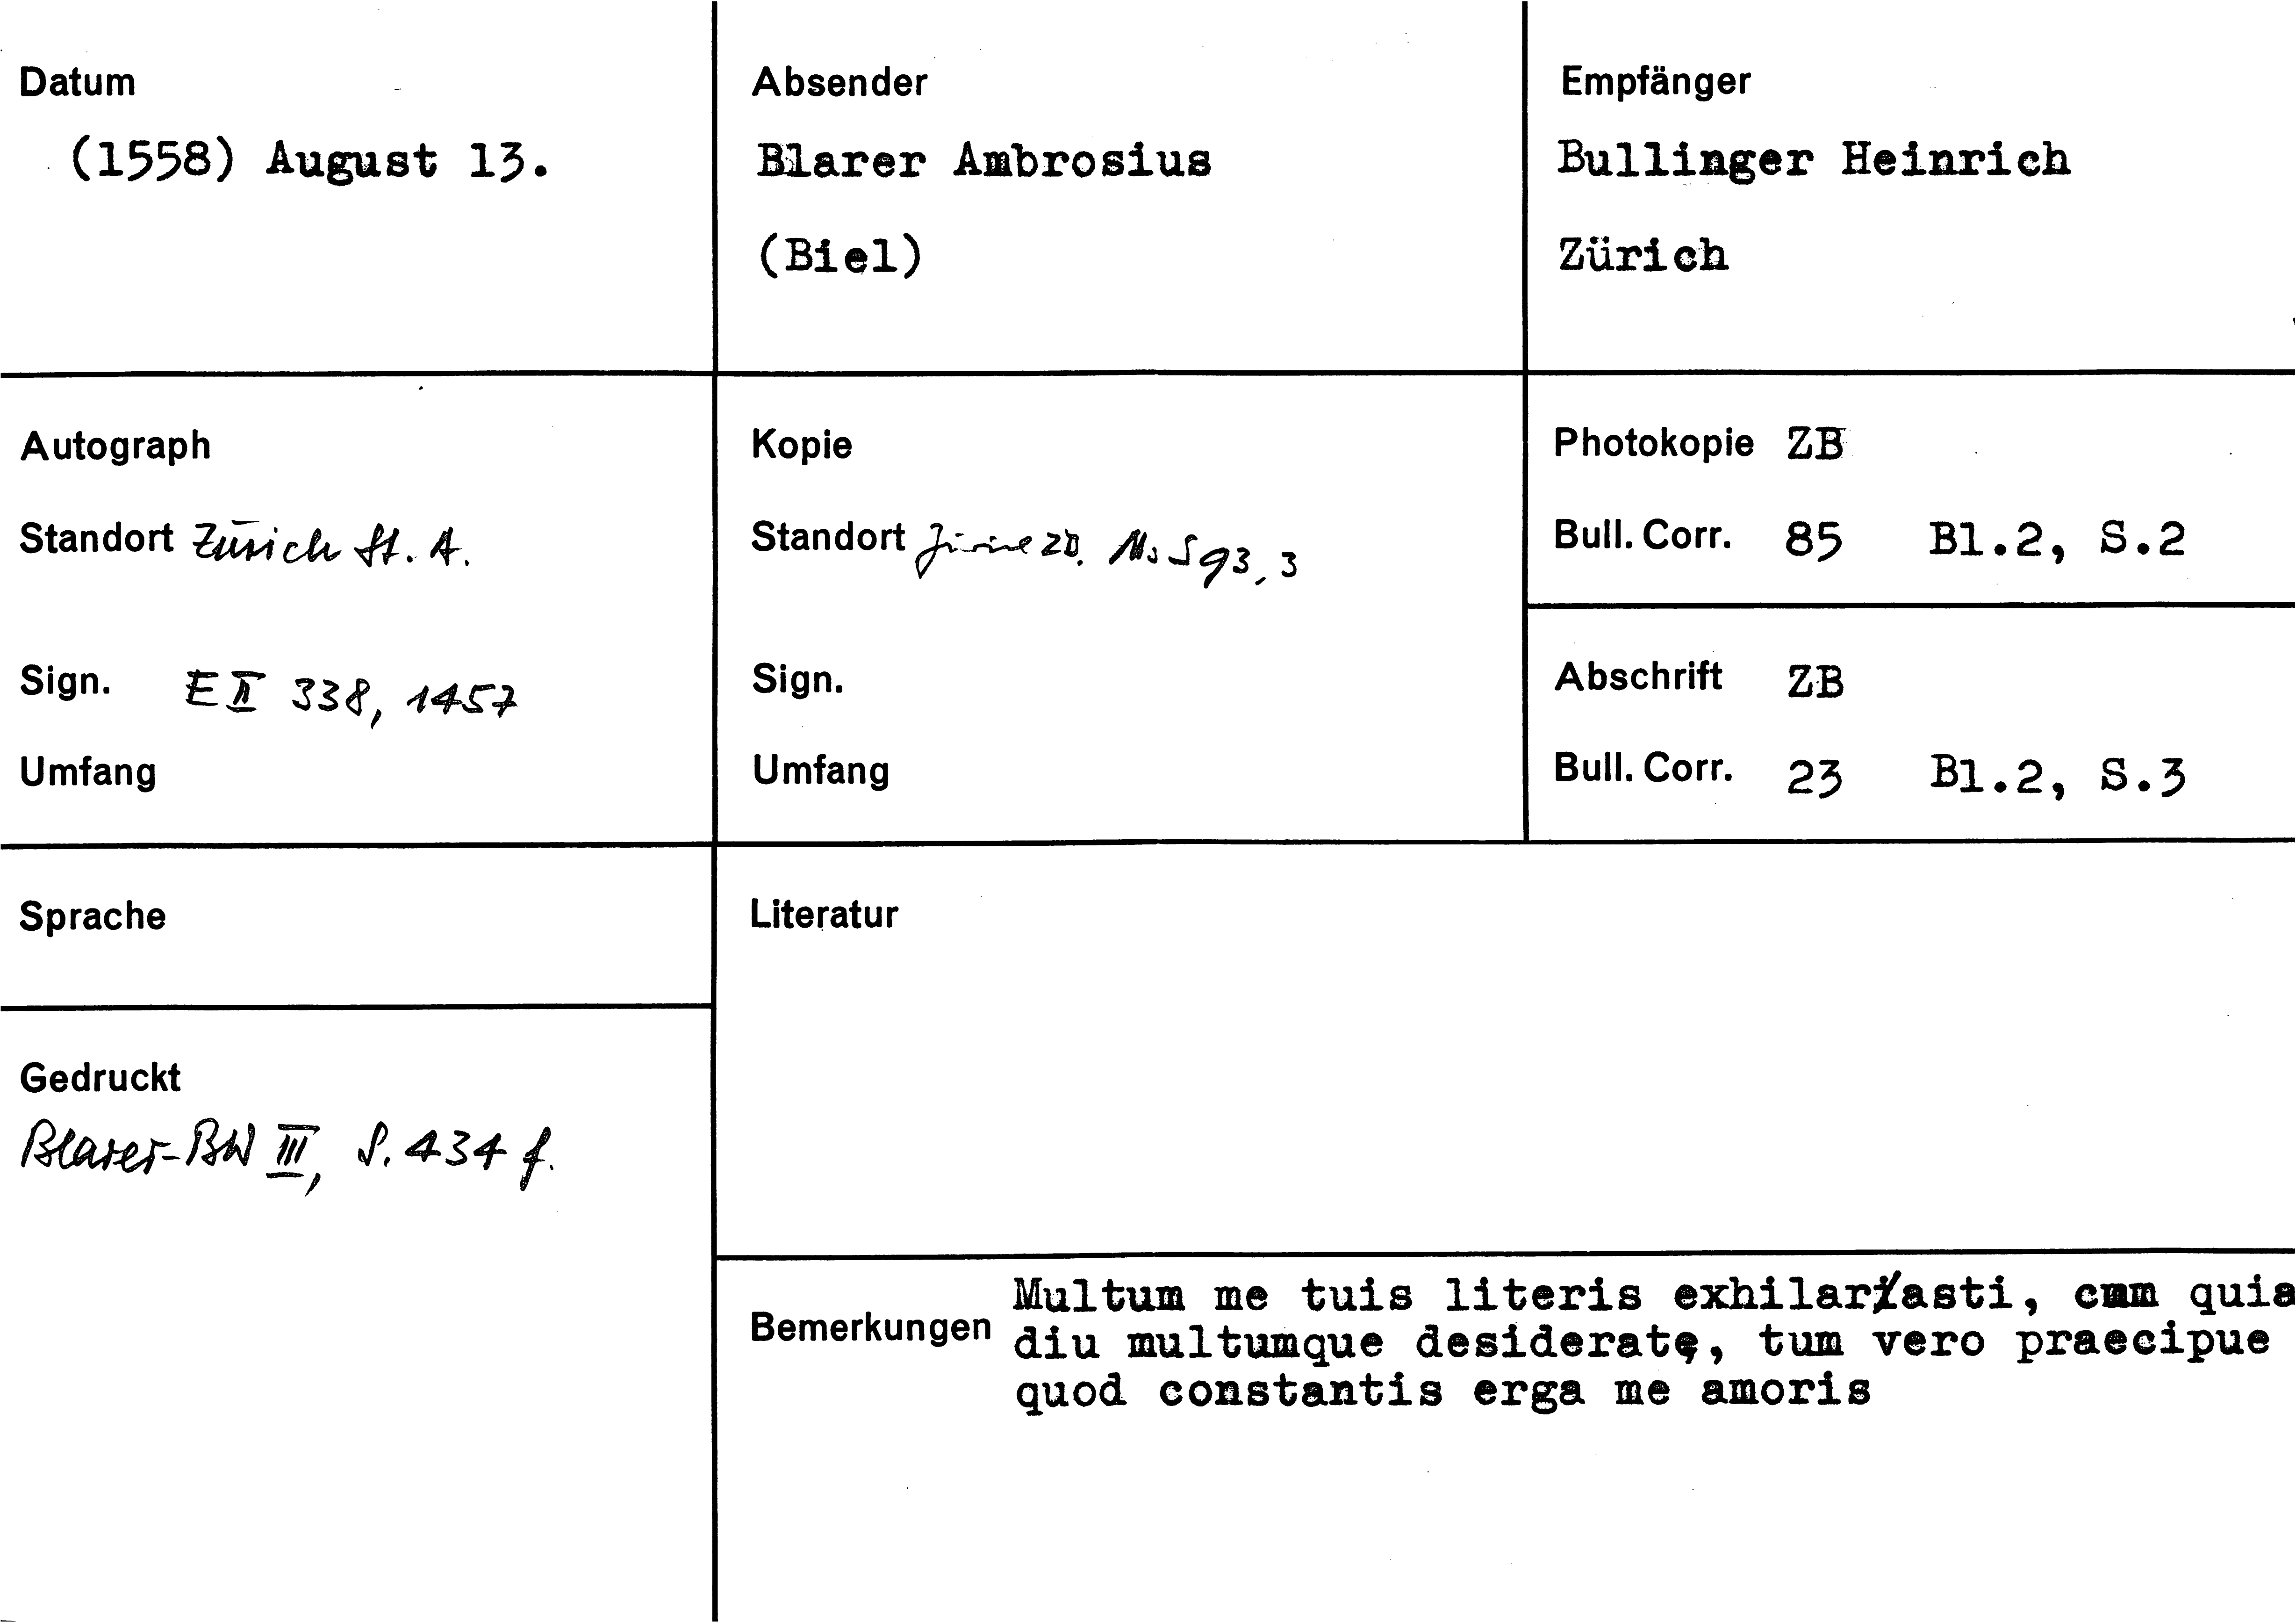 Datum
(1558) August 13.
Absender
Blarer Ambrosius
(Biel)
Empfänger
Bullinger Heinrich
Zürich
Autograph
Standort Zürich St. A.
Sign. E II 338, 1457
Umfang
Kopie
Standort ZB. Ms S 93, 3
Sign.
Umfang
Photokopie ZB
Bull. Corr. 85 Bl.2, S.2
Abschrift ZB
Bull. Corr. 23 Bl.2, S.3
Sprache
Gedruckt
Blarer-BW III, S. 434 f.
Literatur
Bemerkungen
Multum me tuis literis exhilarasti, cum quia
diu multumque desideratę, tum vero praecipue
quod constantis erga me amoris